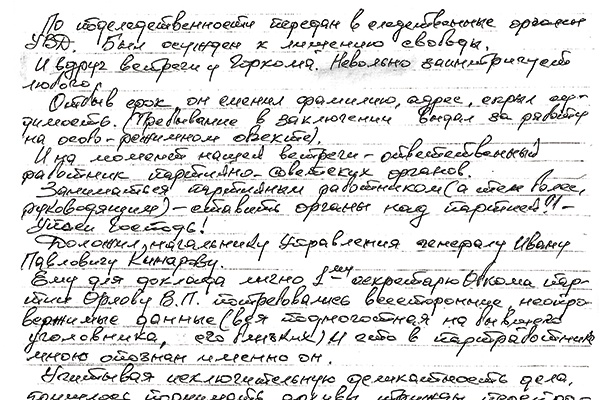 По подследственности передан в следственные органы
УВД. Был осужден к лишению свободы.
И вдруг встреча у Горкома. Невольно заинтригует
любого.
Отбыв срок он сменил фамилию, адрес, скрыл су-
димость. (Пребывание в заключении выдал за работу
на особо-режимном объекте).
И на момент нашей встречи – ответственный
работник партийно-советских органов.
Заниматься партийным работником (а тем более
руководящим) – ставить органы над партией!! –
Упаси господь!
Доложил начальнику Управления генералу Ивану
Павловичу Кинарову.
Ему для доклада лично 1му секретарю Обкома пар-
тии Орлову В.П. потребовались всесторонние, неопро-
вержимые данные (вся подноготная на бывшего
уголовника, его близких) и что в партработнике
мною опознан именно он.
Учитывая исключительную деликатность дела,
пришлось поднимать архивы